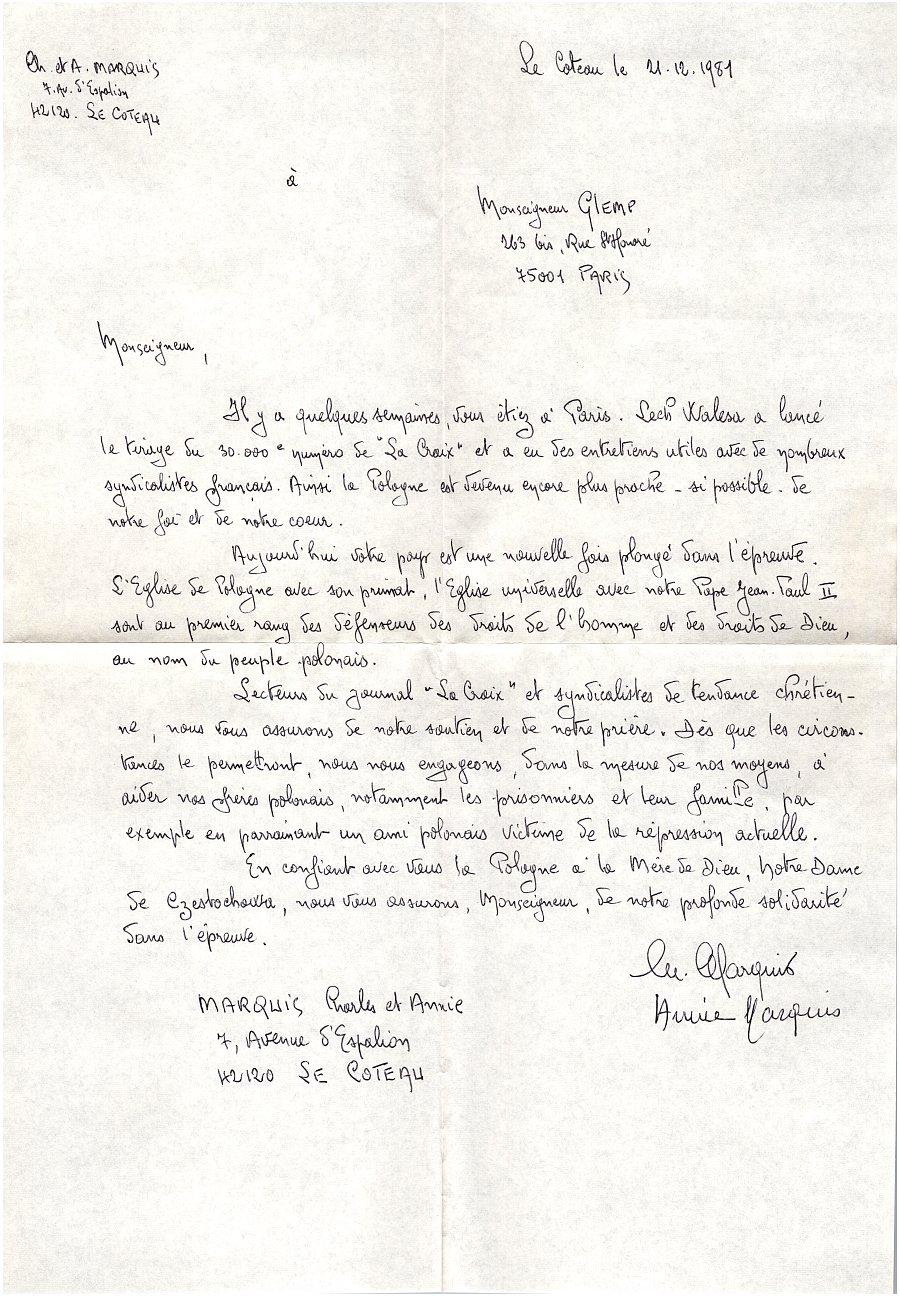 Ch. et A. MARQUIS
7. Av. d'Espalion
42120. LE COTEAU
Le Coteau le 21.12.1981
à
Monseigneur GLEMP
263 bis, Rue St Honoré
75001 PARIS
Monseigneur,
Il y a quelques semaines, vous étiez à Paris. Lech Walesa a lancé
le tirage du 30.000e numéro de "La Croix" et a eu des entretiens utiles avec de nombreux
syndicalistes français. Ainsi la Pologne est devenu encore plus proche - si possible - de
notre foi et de notre coeur.
Aujourd'hui votre pays est une nouvelle fois plongé dans l'épreuve.
L'Eglise de Pologne avec son primat, l'Eglise universelle avec notre Pape Jean-Paul II
sont au premier rang des défenseurs des droits de l'homme et des droits de Dieu,
au nom du peuple polonais.
Lecteurs du journal "La Croix" et syndicalistes de tendance chrétien-
ne, nous vous assurons de notre soutien et de notre prière. Dès que les circons-
tances le permettront, nous nous engageons, dans la mesure de nos moyens, à
aider nos frères polonais, notamment les prisonniers et leur famille, par
exemple en parrainant un ami polonais victime de la répression actuelle.
En confiant avec vous la Pologne à la Mère de Dieu, Notre Dame
de Czestochowa, nous vous assurons, Monseigneur, de notre profonde solidarité
dans l'épreuve.
Ch. Marquis
Annie Marquis
MARQUIS Charles et Annie
7, Avenue d'Espalion
42120 LE COTEAU